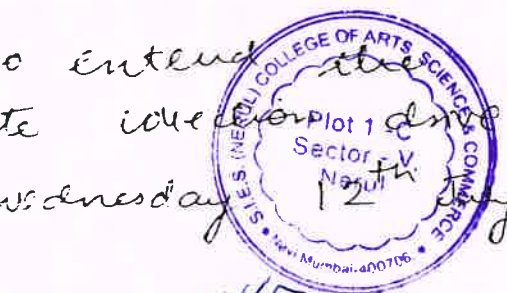 o extend the
te collection drive
wednesday 12th July
S.I.E.S. (NERUL) COLLEGE OF ARTS, SCIENCE & COMMERCE
Plot 1 C
Sector - V
Nerul
Navi Mumbai-400706